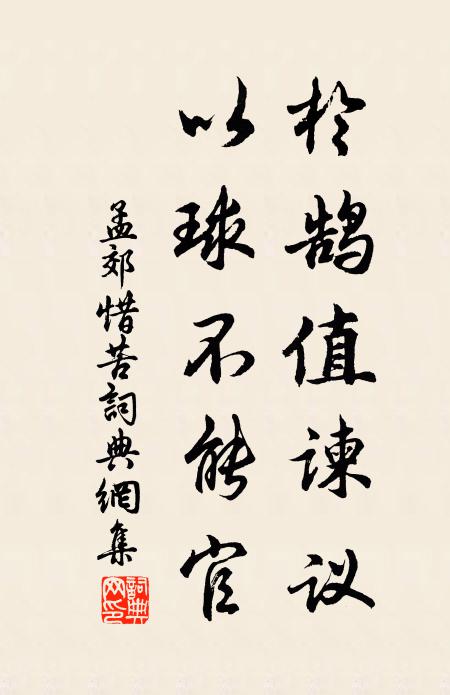 於鵠值諫议
以球不能官
孟郊惜苦詞典網集
詞典网印